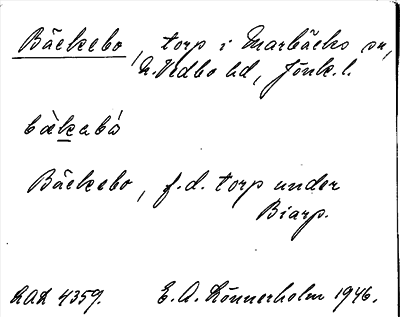 Bäckebo, torp i Marbäcks sn,
N. Vedbo hd, Jönk. l.
bäkabò
Bäckebo, f.d. torp under
Biarp.
RAÄ 4359. E. A. Lönnerholm 1946.